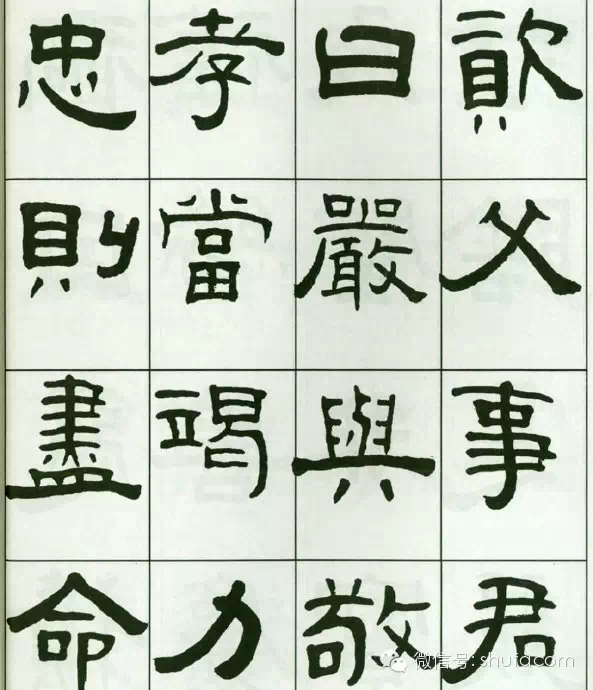 資父事君
曰嚴與敬
孝當竭力
忠則盡命
微信号: shufacom